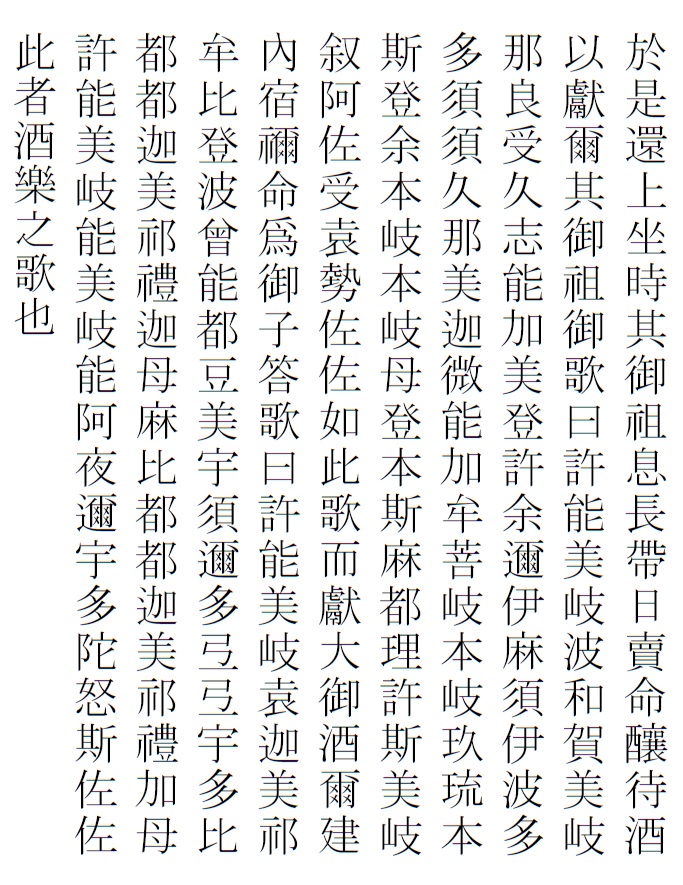 於是還上坐時其御祖息長帶日賣命釀待酒
以獻爾其御祖御歌曰許能美岐波和賀美岐
那良受久志能加美登許余邇伊麻須伊波多
多須須久那美迦微能加牟菩岐本岐玖琉本
斯登余本岐本岐母登本斯麻都理許斯美岐
叙阿佐受袁勢佐佐如此歌而獻大御酒爾建
內宿禰命爲御子答歌曰許能美岐袁迦美祁
牟比登波曾能都豆美宇須邇多弖弖宇多比
都都迦美祁禮迦母麻比都都迦美祁禮加母
許能美岐能美岐能阿夜邇宇多陀怒斯佐佐
此者酒樂之歌也